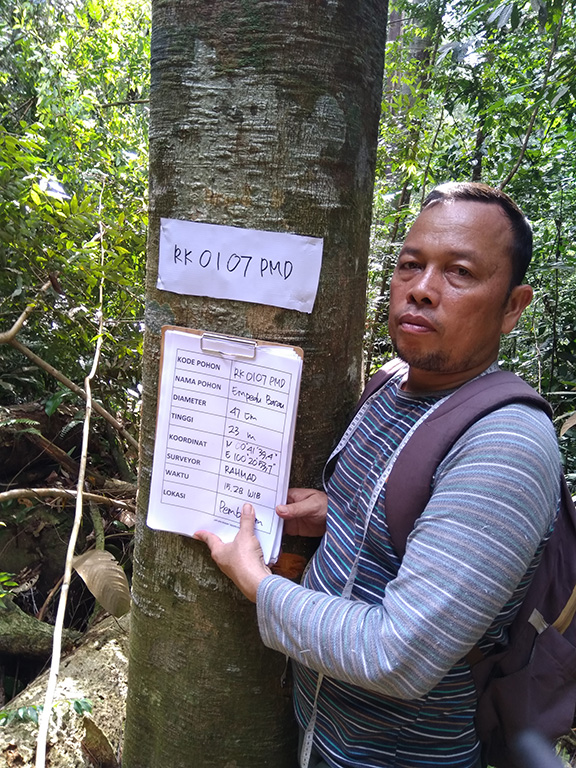 RK 0107 PMD
KODE POHON RK0107 PMD
NAMA POHON Empedu
DIAMETER 47 cm
TINGGI 23 m
KOORDINAT N 00°41'39,4"
E 100°20'53,7"
SURVEYOR RAHMAD
WAKTU 15.28 WIB
LOKASI